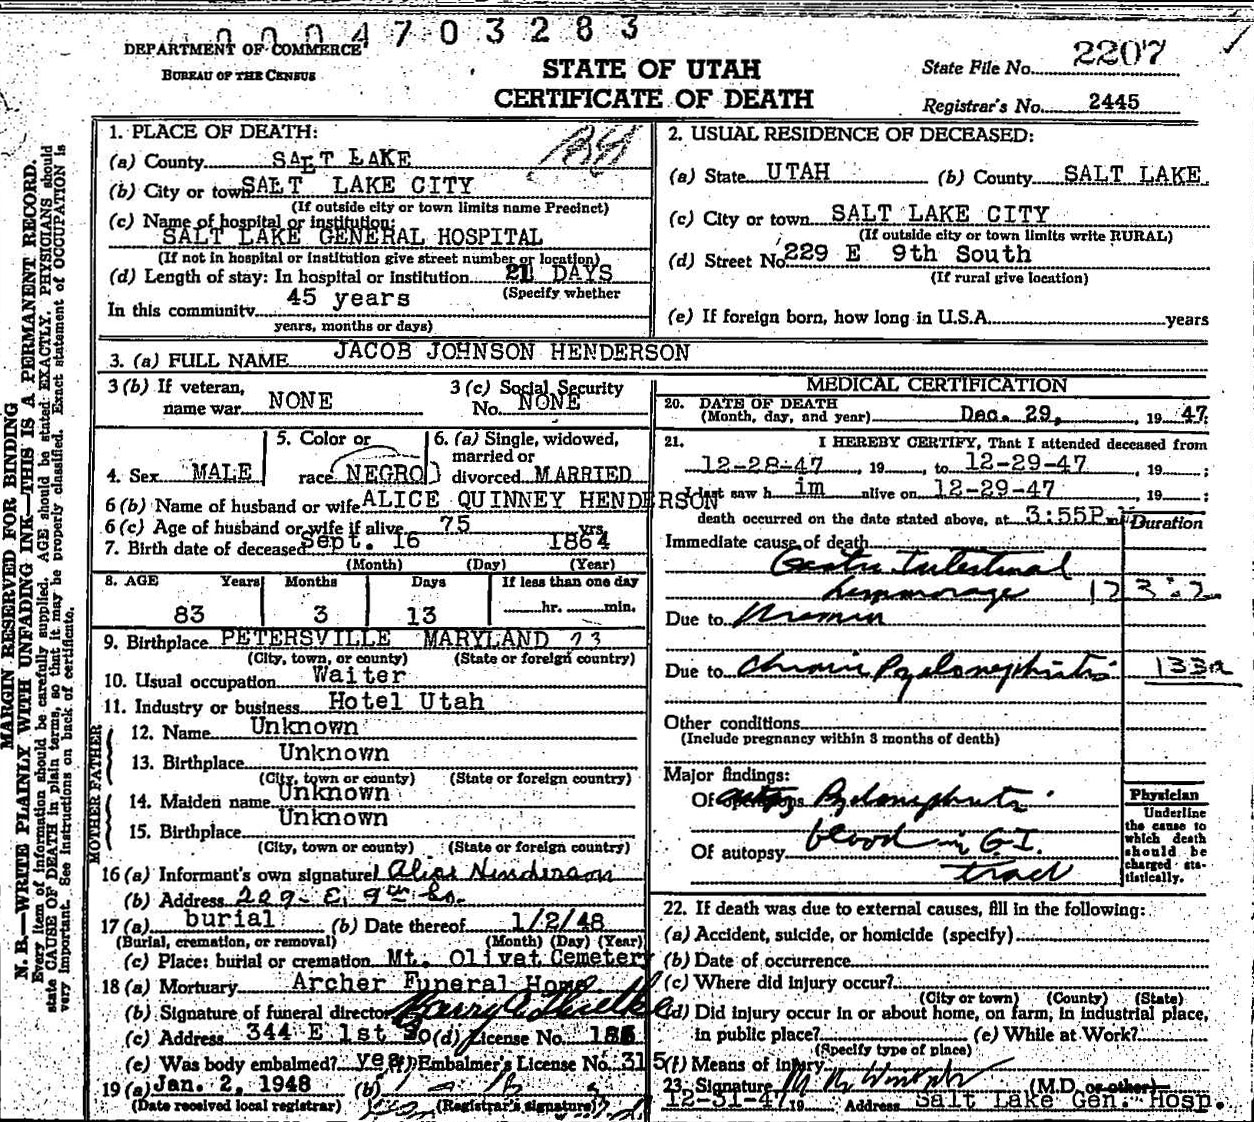 0004703283
DEPARTMENT OF COMMERCE
BUREAU OF THE CENSUS
STATE OF UTAH
CERTIFICATE OF DEATH
State File No. 2207
Registrar's No. 2445
MARGIN RESERVED FOR BINDING
N. B.—WRITE PLAINLY WITH UNFADING INK—THIS IS A PERMANENT RECORD.
Every item of information should be carefully supplied. AGE should be stated EXACTLY. PHYSICIANS should
state CAUSE OF DEATH in plain terms, so that it may be properly classified. Exact statement of OCCUPATION is
very important. See instructions on back of certificate.
1. PLACE OF DEATH:
(a) County SALT LAKE
(b) City or town SALT LAKE CITY
(If outside city or town limits name Precinct)
(c) Name of hospital or institution:
SALT LAKE GENERAL HOSPITAL
(If not in hospital or institution give street number or location)
(d) Length of stay: In hospital or institution 21 DAYS
(Specify whether
In this community 45 years
years, months or days)
2. USUAL RESIDENCE OF DECEASED:
(a) State UTAH (b) County SALT LAKE
(c) City or town SALT LAKE CITY
(If outside city or town limits write RURAL)
(d) Street No. 229 E 9th South
(If rural give location)
(e) If foreign born, how long in U.S.A. years
3. (a) FULL NAME JACOB JOHNSON HENDERSON
3 (b) If veteran, name war NONE
3 (c) Social Security No. NONE
4. Sex MALE
5. Color or race NEGRO
6. (a) Single, widowed, married or divorced MARRIED
6 (b) Name of husband or wife ALICE QUINNEY HENDERSON
6 (c) Age of husband or wife if alive 75 yrs.
7. Birth date of deceased Sept. 16 1864
(Month) (Day) (Year)
8. AGE Years Months Days If less than one day
83 3 13 hr. min.
9. Birthplace PETERSVILLE MARYLAND 23
(City, town, or county) (State or foreign country)
10. Usual occupation Waiter
11. Industry or business Hotel Utah
FATHER
12. Name Unknown
13. Birthplace Unknown
(City, town or county) (State or foreign country)
MOTHER
14. Maiden name Unknown
15. Birthplace Unknown
(City, town or county) (State or foreign country)
16 (a) Informant's own signature Alice Henderson
(b) Address 229 E. 9th So.
17 (a) burial (b) Date thereof 1/2/48
(Burial, cremation, or removal) (Month) (Day) (Year)
(c) Place: burial or cremation Mt. Olivet Cemetery
18 (a) Mortuary Archer Funeral Home
(b) Signature of funeral director
(c) Address 344 E 1st So (d) License No.
(e) Was body embalmed? yes (f) Embalmer's License No. 315
19 (a) Jan. 2, 1948 (b)
(Date received local registrar) (Registrar's signature)
MEDICAL CERTIFICATION
20. DATE OF DEATH
(Month, day, and year) Dec. 29, 19 47
21. I HEREBY CERTIFY, That I attended deceased from
12-28-47, 19 , to 12-29-47, 19 ;
I last saw h im alive on 12-29-47, 19 ;
death occurred on the date stated above, at 3:55P m. Duration
Immediate cause of death
Gastro Intestinal
hemmorage
Due to Uremia
Due to Chronic Pyelonephritis 133a
Other conditions
(Include pregnancy within 3 months of death)
Major findings:
Of operations Pyelonephritis
Of autopsy blood in G.I.
tract
Physician
Underline
the cause to
which death
should be
charged sta-
tistically.
22. If death was due to external causes, fill in the following:
(a) Accident, suicide, or homicide (specify)
(b) Date of occurrence
(c) Where did injury occur?
(City or town) (County) (State)
(d) Did injury occur in or about home, on farm, in industrial place,
in public place? (e) While at Work?
(Specify type of place)
(f) Means of injury
23. Signature (M.D. or other)
12-31-47 19 Address Salt Lake Gen. Hosp.